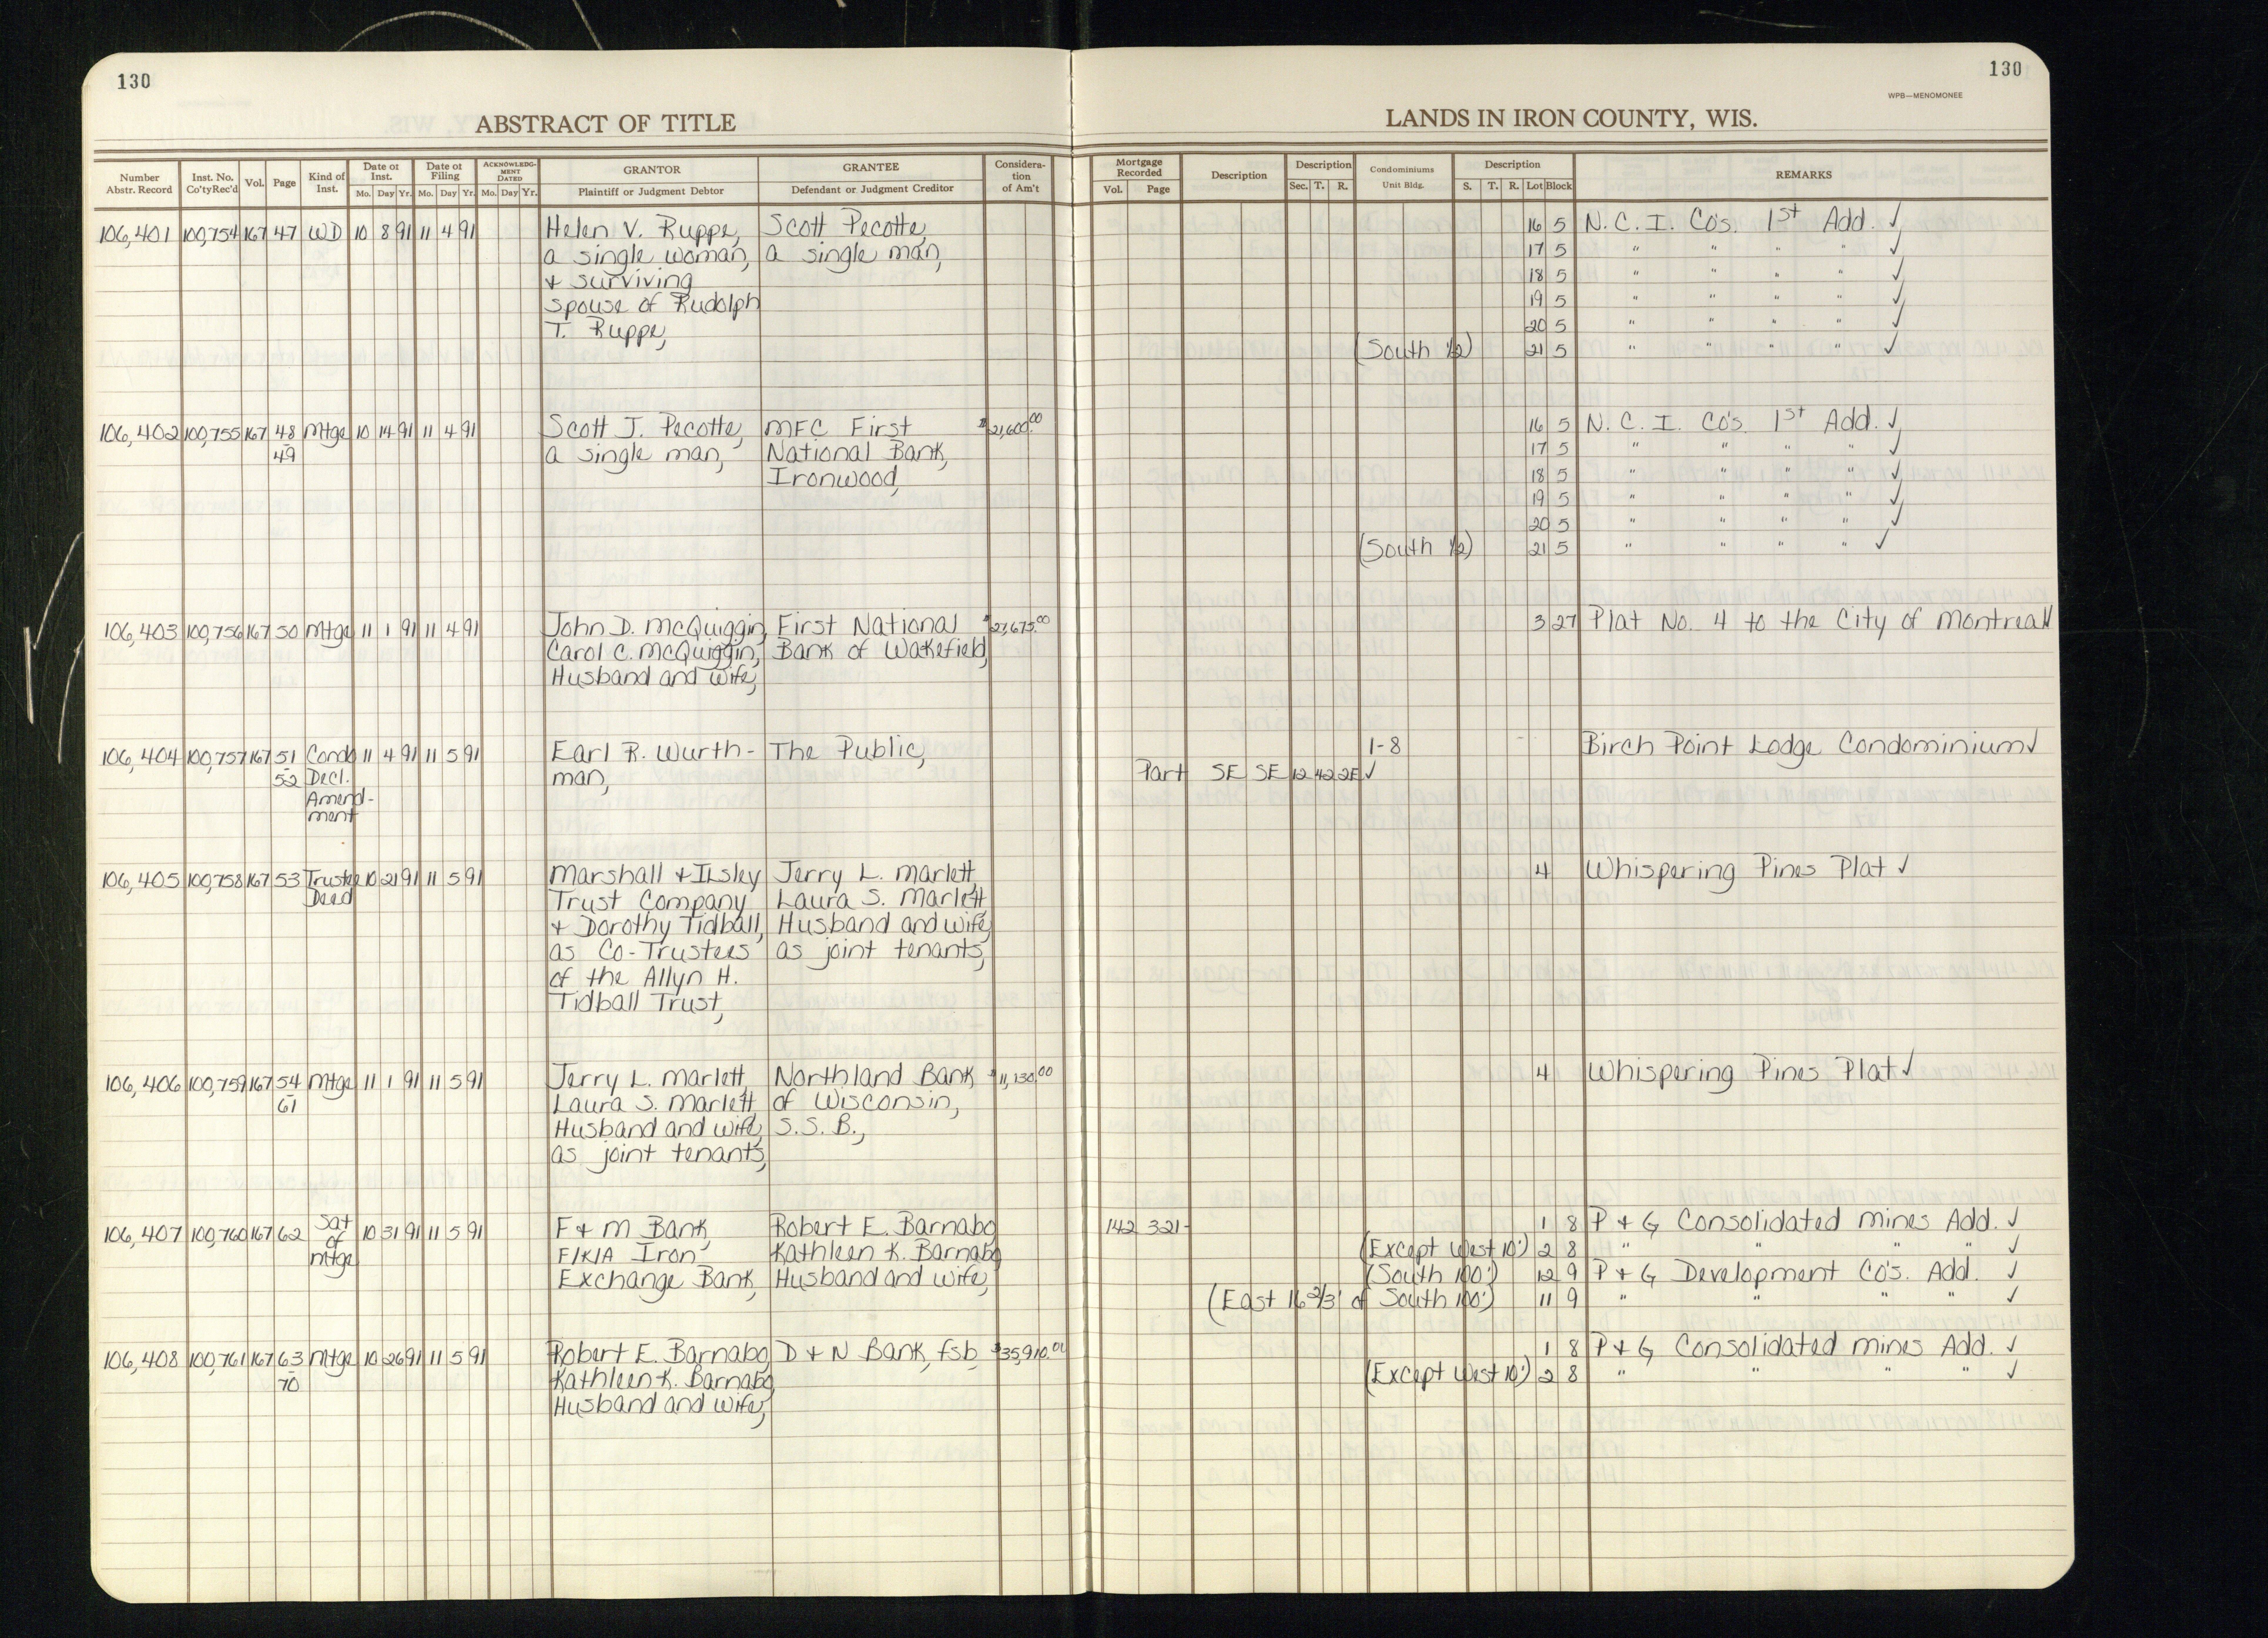 130
130
WPB—MENOMONEE
ABSTRACT OF TITLE
LANDS IN IRON COUNTY, WIS.
Number Abstr. Record | Inst. No. Co'tyRec'd | Vol. | Page | Kind of Inst. | Date of Inst. Mo. Day Yr. | Date of Filing Mo. Day Yr. | ACKNOWLEDG-MENT DATED Mo. Day Yr. | GRANTOR Plaintiff or Judgment Debtor | GRANTEE Defendant or Judgment Creditor | Considera-tion of Am't | Mortgage Recorded Vol. Page | Description | Description Sec. T. R. | Condominiums Unit Bldg. | Description S. T. R. Lot Block | REMARKS
106,401 100,754 167 47 WD 10 8 91 11 4 91 Helen V. Ruppe, Scott Pecotte, 16 5 N. C. I. Co's. 1st Add. ✓
a single woman, a single man, 17 5 " " " " ✓
+ surviving 18 5 " " " " ✓
spouse of Rudolph 19 5 " " " " ✓
T. Ruppe, 20 5 " " " " ✓
(South 1/2) 21 5 " " " " ✓
106,402 100,755 167 48 Mtge 10 14 91 11 4 91 Scott J. Pecotte, MFC First $21,600.00 16 5 N. C. I. Co's. 1st Add. ✓
49 a single man, National Bank, 17 5 " " " " ✓
Ironwood, 18 5 " " " " ✓
19 5 " " " " ✓
20 5 " " " " ✓
(South 1/2) 21 5 " " " " ✓
106,403 100,756 167 50 Mtge 11 1 91 11 4 91 John D. McQuiggin, First National $27,675.00 3 27 Plat No. 4 to the City of Montreal ✓
Carol C. McQuiggin, Bank of Wakefield,
Husband and wife,
106,404 100,757 167 51 Condo 11 4 91 11 5 91 Earl R. Wurth- The Public, 1-8 Birch Point Lodge Condominium ✓
52 Decl. man, Part SE SE 12 42 2E ✓
Amend-
ment
106,405 100,758 167 53 Trustee 10 21 91 11 5 91 Marshall + ILsley Jerry L. Marlett, 4 Whispering Pines Plat ✓
Deed Trust Company Laura S. Marlett
+ Dorothy Tidball, Husband and wife,
as Co-Trustees as joint tenants,
of the Allyn H.
Tidball Trust,
106,406 100,759 167 54 Mtge 11 1 91 11 5 91 Jerry L. Marlett, Northland Bank $11,130.00 4 Whispering Pines Plat ✓
61 Laura S. Marlett, of Wisconsin,
Husband and wife, S. S. B.,
as joint tenants,
106,407 100,760 167 62 Sat 10 31 91 11 5 91 F + M Bank, Robert E. Barnabo, 142 321- 1 8 P + G Consolidated Mines Add. ✓
of F/K/A Iron Kathleen K. Barnabo (Except West 10') 2 8 " " " " ✓
Mtge Exchange Bank, Husband and wife, (South 100') 12 9 P + G Development Co's. Add. ✓
(East 16 2/3' of South 100') 11 9 " " " " ✓
106,408 100,761 167 63 Mtge 10 26 91 11 5 91 Robert E. Barnabo, D + N Bank, fsb, $35,910.00 1 8 P + G Consolidated Mines Add. ✓
70 Kathleen K. Barnabo, (Except West 10') 2 8 " " " " ✓
Husband and wife,